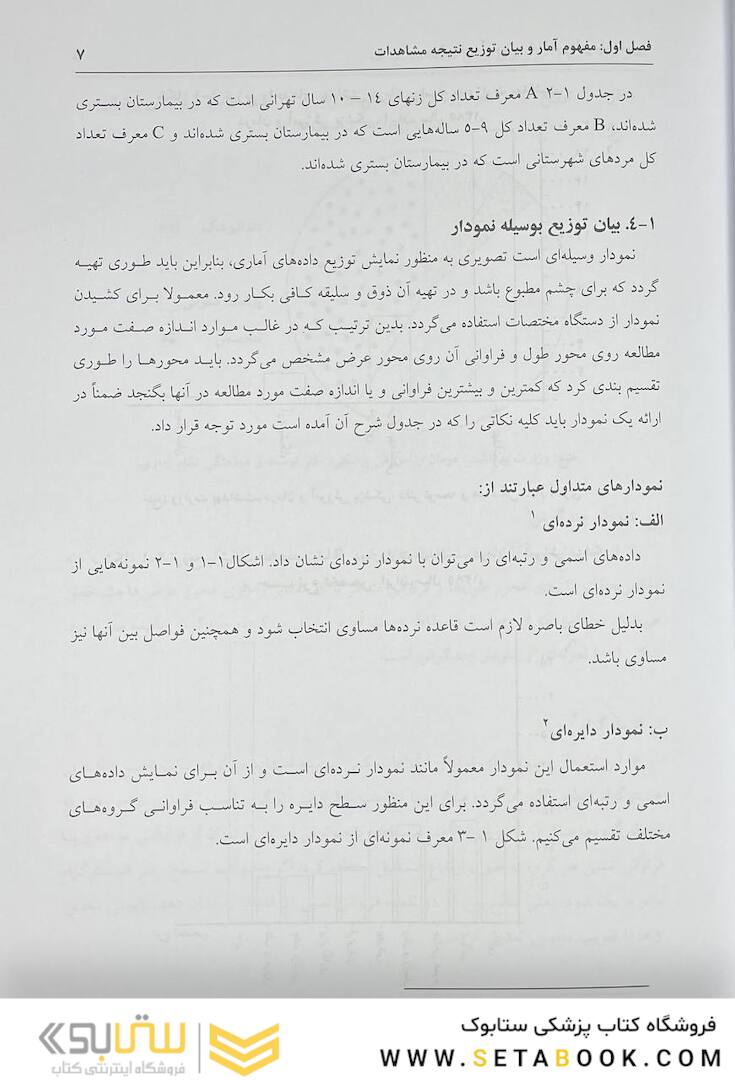 فصل اول: مفهوم آمار و بیان توزیع نتیجه مشاهدات ۷
در جدول ۱-۲ A معرف تعداد کل زنهای ۱٤ – ۱۰ سال تهرانی است که در بیمارستان بستری
شده‌اند، B معرف تعداد کل ۹-۵ ساله‌هایی است که در بیمارستان بستری شده‌اند و C معرف تعداد
کل مردهای شهرستانی است که در بیمارستان بستری شده‌اند.
۱-٤. بیان توزیع بوسیله نمودار
نمودار وسیله‌ای است تصویری به منظور نمایش توزیع داده‌های آماری، بنابراین باید طوری تهیه
گردد که برای چشم مطبوع باشد و در تهیه آن ذوق و سلیقه کافی بکار رود. معمولا برای کشیدن
نمودار از دستگاه مختصات استفاده می‌گردد. بدین ترتیب که در غالب موارد اندازه صفت مورد
مطالعه روی محور طول و فراوانی آن روی محور عرض مشخص می‌گردد. باید محورها را طوری
تقسیم بندی کرد که کمترین و بیشترین فراوانی و یا اندازه صفت مورد مطالعه در آنها بگنجد ضمناً در
ارائه یک نمودار باید کلیه نکاتی را که در جدول شرح آن آمده است مورد توجه قرار داد.
نمودارهای متداول عبارتند از:
الف: نمودار نرده‌ای ۱
داده‌های اسمی و رتبه‌ای را می‌توان با نمودار نرده‌ای نشان داد. اشکال۱-۱ و ۱-۲ نمونه‌هایی از
نمودار نرده‌ای است.
بدلیل خطای باصره لازم است قاعده نرده‌ها مساوی انتخاب شود و همچنین فواصل بین آنها نیز
مساوی باشد.
ب: نمودار دایره‌ای۲
موارد استعمال این نمودار معمولاً مانند نمودار نرده‌ای است و از آن برای نمایش داده‌های
اسمی و رتبه‌ای استفاده می‌گردد. برای این منظور سطح دایره را به تناسب فراوانی گروه‌های
مختلف تقسیم می‌کنیم. شکل ۱ -۳ معرف نمونه‌ای از نمودار دایره‌ای است.
فروشگاه کتاب پزشکی ستابوک
WWW.SETABOOK.COM
ستابوک
فروشگاه اینترنتی کتاب